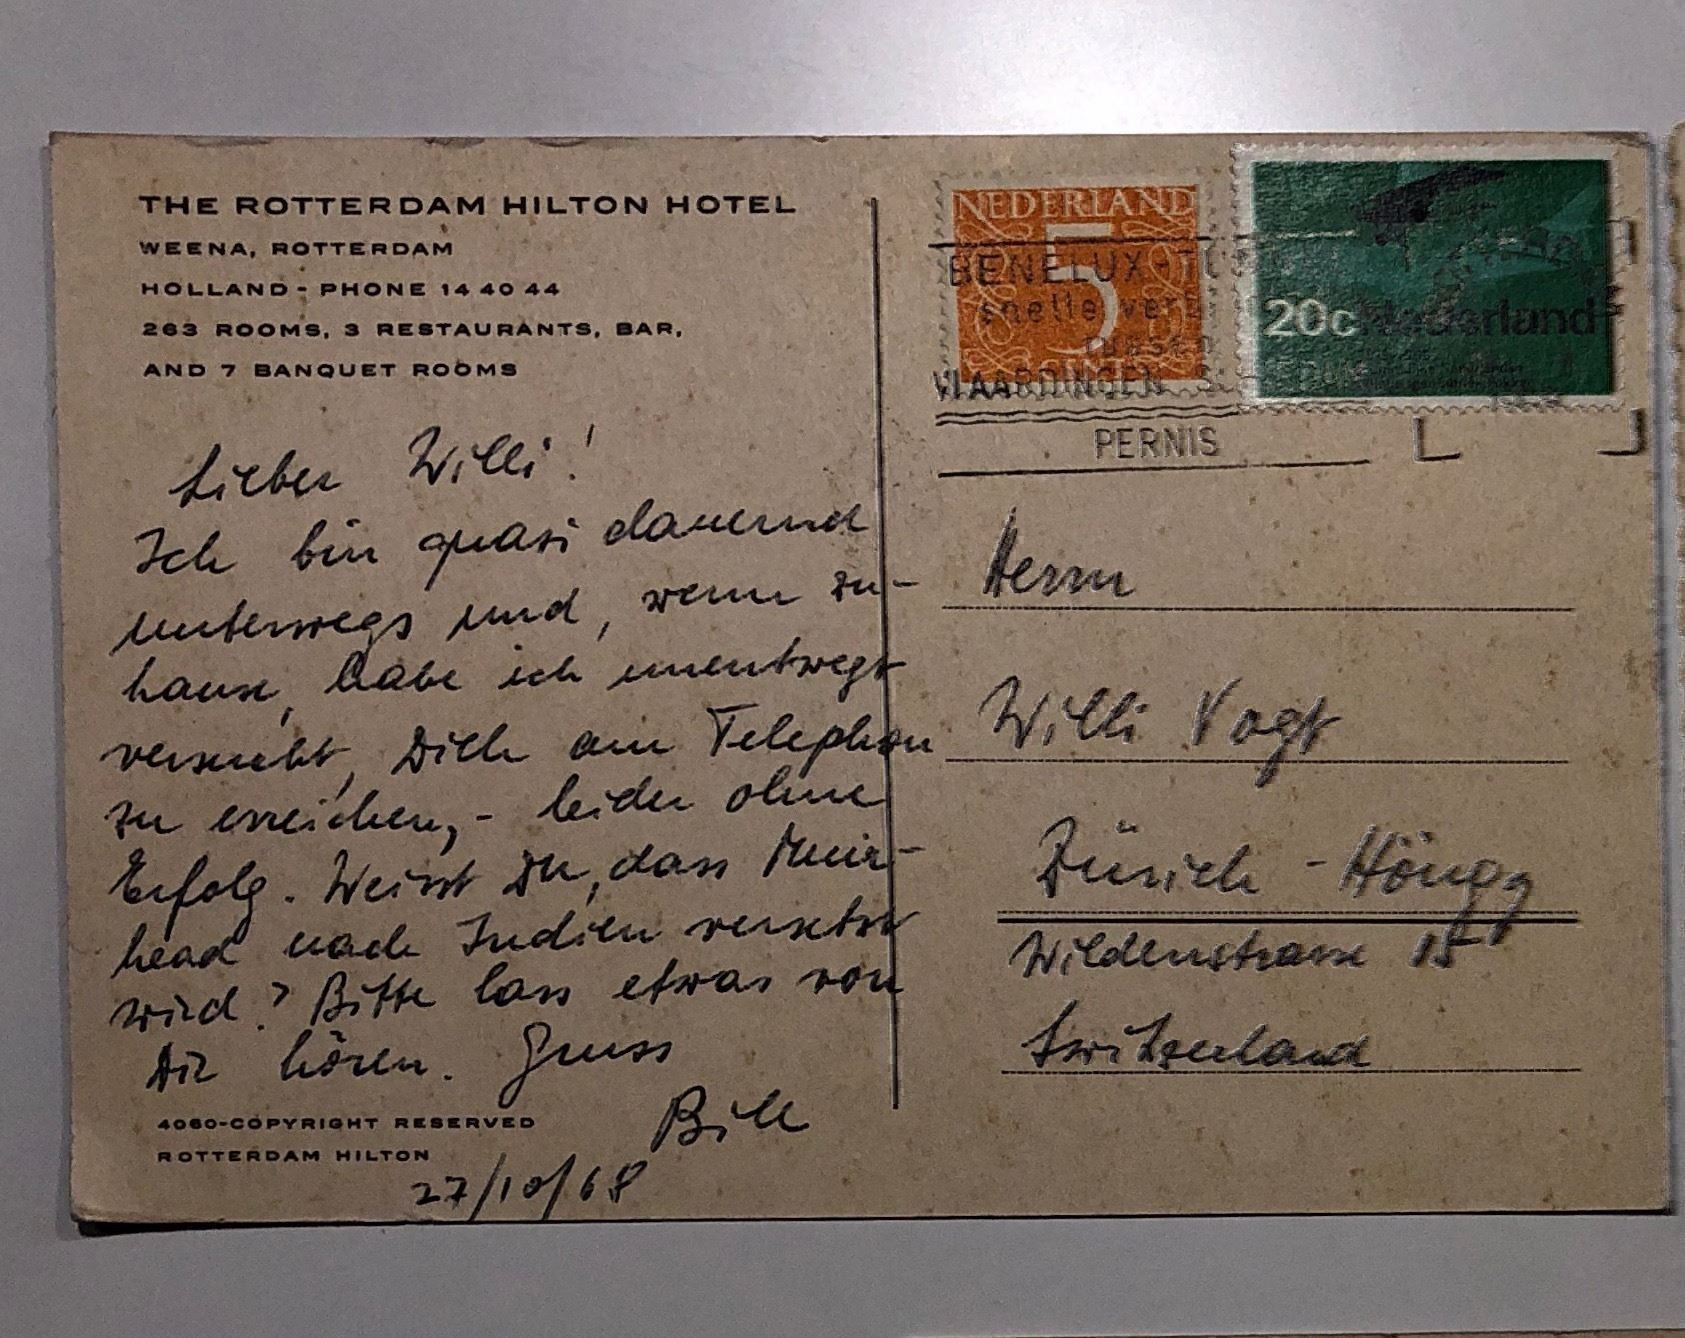 THE ROTTERDAM HILTON HOTEL
WEENA, ROTTERDAM
HOLLAND - PHONE 14 40 44
263 ROOMS, 3 RESTAURANTS, BAR,
AND 7 BANQUET ROOMS
Lieber Willi!
Ich bin quasi dauernd
unterwegs und, wenn zu-
hause, habe ich unentwegt
versucht, Dich am Telephon
zu erreichen, - leider ohne
Erfolg. Weisst Du, dass Muir-
head nach Indien versetzt
wird? Bitte lass etwas von
Dir hören. Gruss
Bill
4060-COPYRIGHT RESERVED
ROTTERDAM HILTON
27/10/68
NEDERLAND
5
CENT
20c Nederland
BENELUX-TUNNEL
snelle
tussen
VLAARDINGEN
PERNIS
Herrn
Willi Vogt
Zürich - Höngg
Wildenstrasse 15
Switzerland